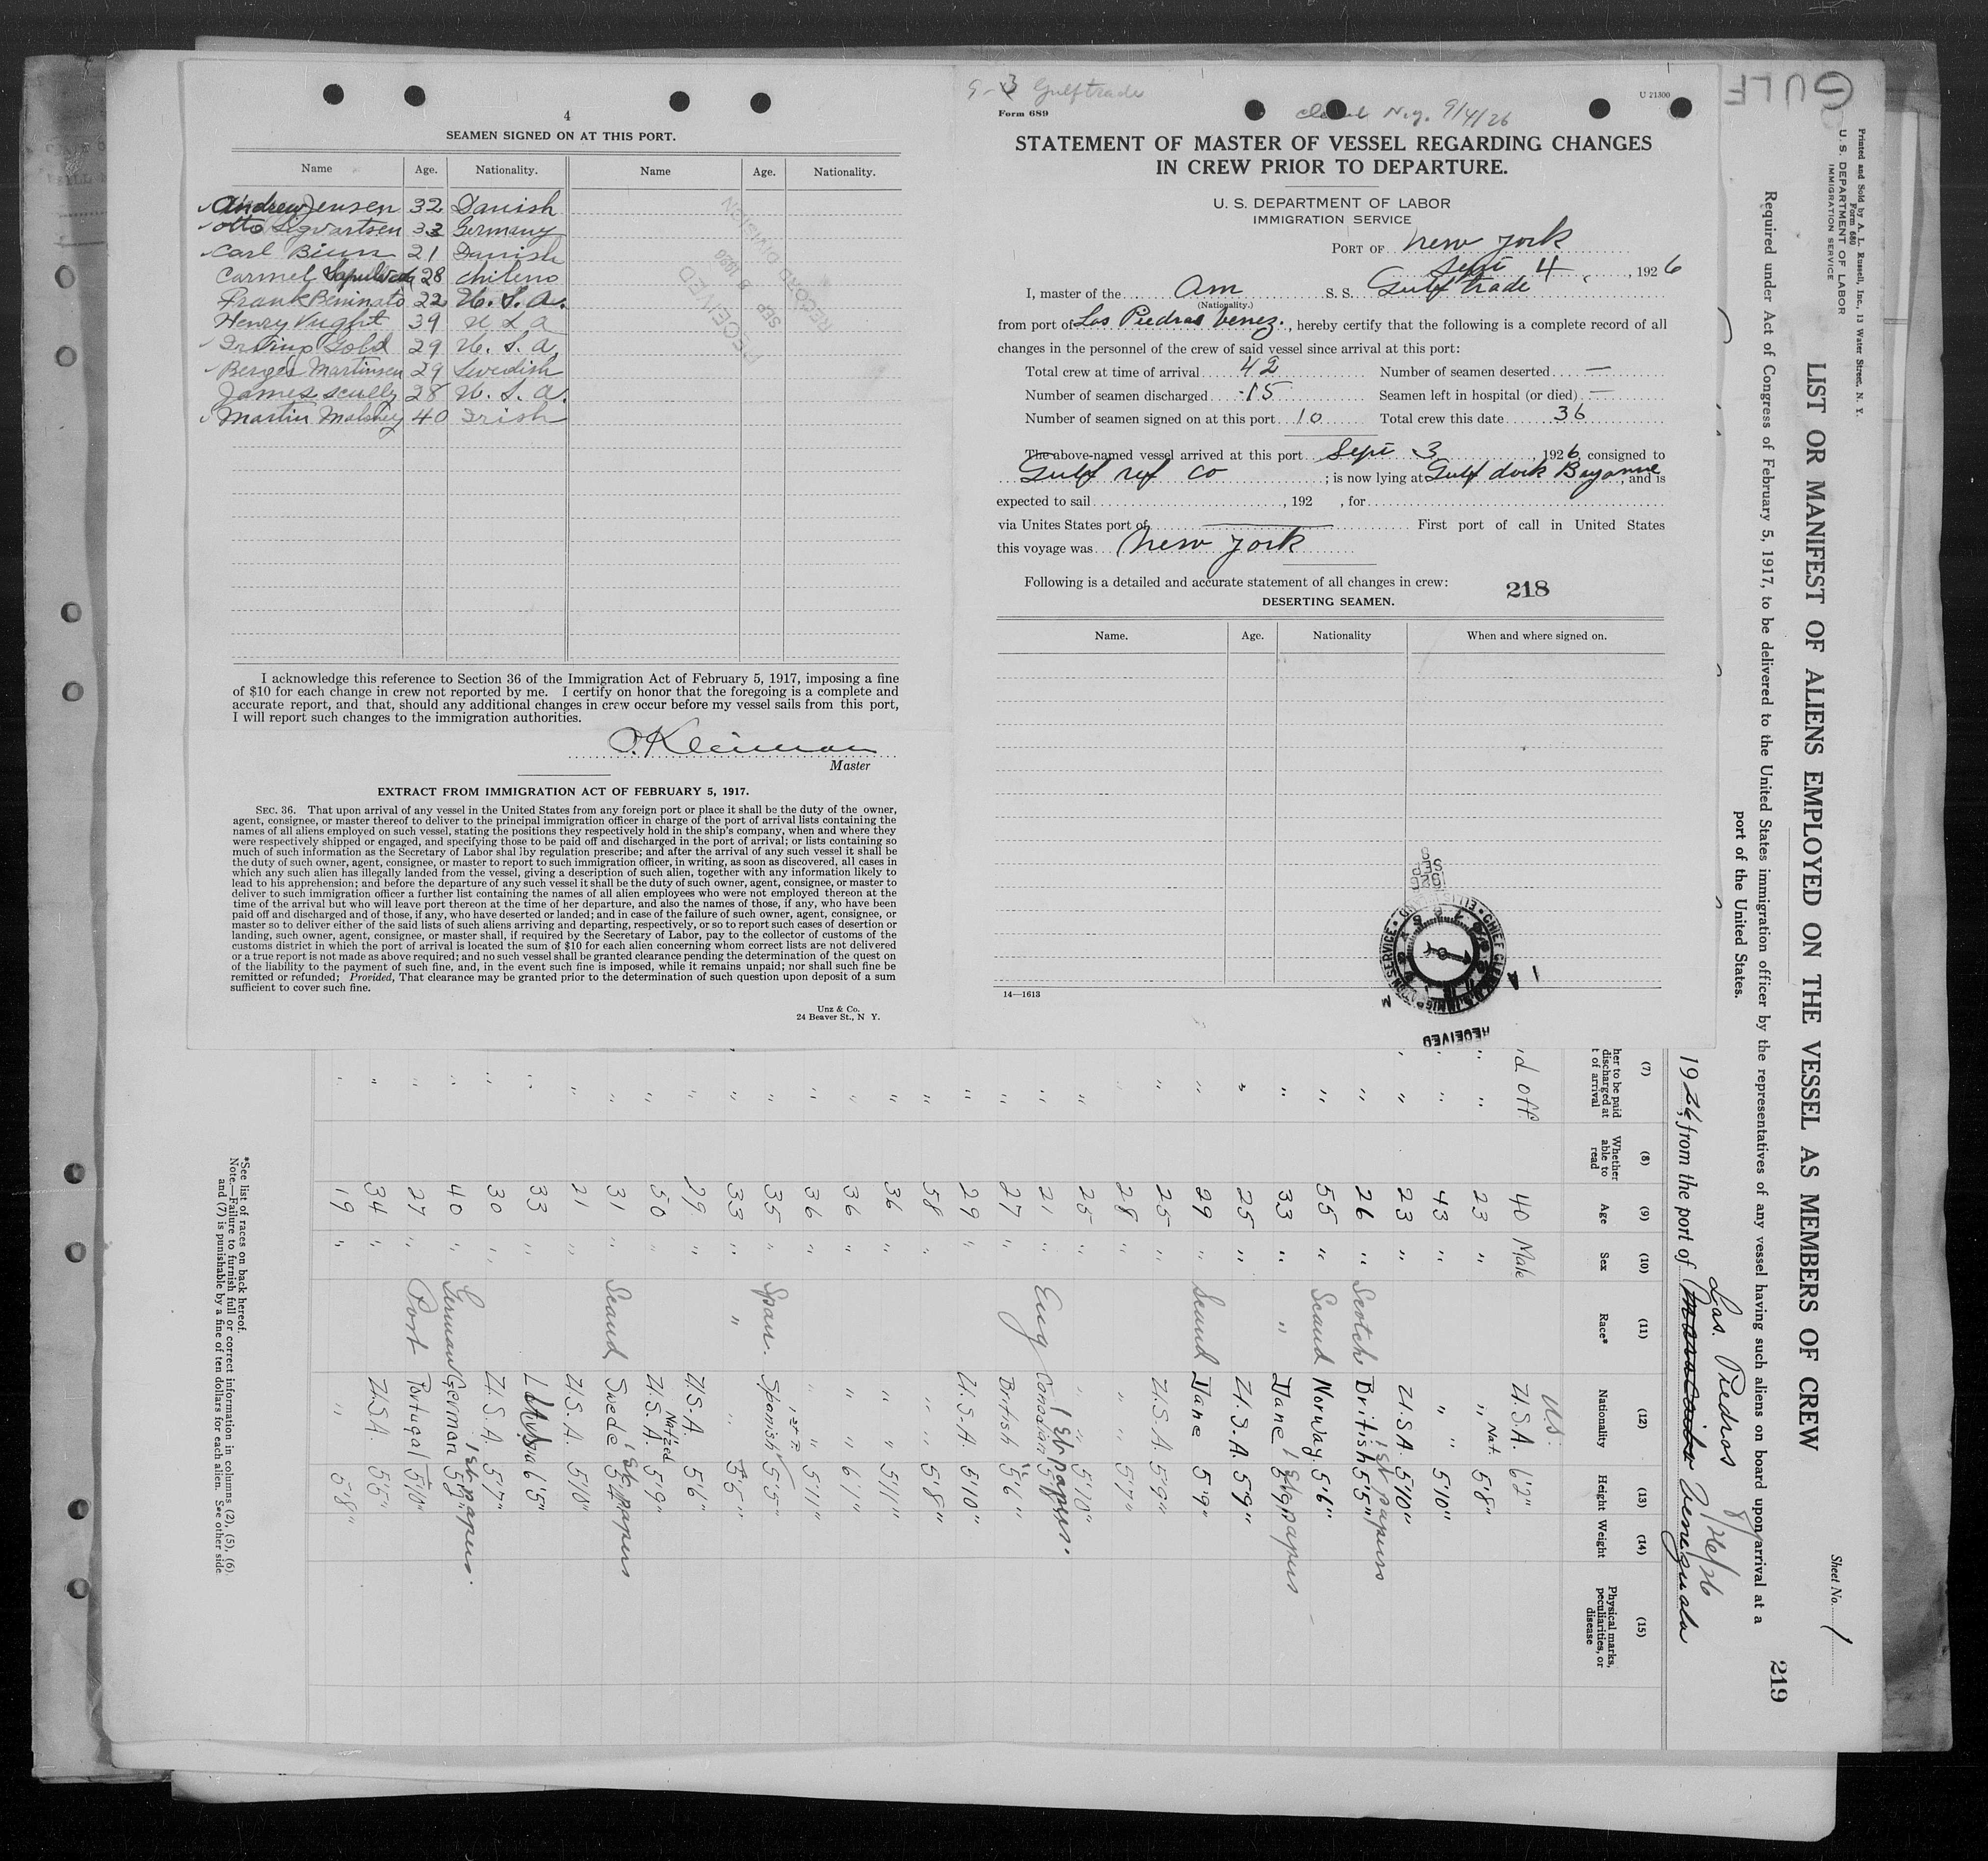 4
SEAMEN SIGNED ON AT THIS PORT.
Name Age. Nationality. Name Age. Nationality.
Andrew Jensen 32 Danish
Otto Sigvartsen 33 Germany
Carl Biun 21 Danish
Carmel 28 Chileno
Frank Beninato 22 U. S. A.
Henry Vught 39 U S A
Irving Gold 29 U. S. A.
Berger Martinsen 29 Swedish
James Scully 28 U. S. A.
Martin 40 Irish
RECEIVED
SEP 8 1926
RECORD DIVISION
I acknowledge this reference to Section 36 of the Immigration Act of February 5, 1917, imposing a fine
of $10 for each change in crew not reported by me. I certify on honor that the foregoing is a complete and
accurate report, and that, should any additional changes in crew occur before my vessel sails from this port,
I will report such changes to the immigration authorities.
Master
EXTRACT FROM IMMIGRATION ACT OF FEBRUARY 5, 1917.
SEC. 36. That upon arrival of any vessel in the United States from any foreign port or place it shall be the duty of the owner,
agent, consignee, or master thereof to deliver to the principal immigration officer in charge of the port of arrival lists containing the
names of all aliens employed on such vessel, stating the positions they respectively hold in the ship's company, when and where they
were respectively shipped or engaged, and specifying those to be paid off and discharged in the port of arrival; or lists containing so
much of such information as the Secretary of Labor shal lby regulation prescribe; and after the arrival of any such vessel it shall be
the duty of such owner, agent, consignee, or master to report to such immigration officer, in writing, as soon as discovered, all cases in
which any such alien has illegally landed from the vessel, giving a description of such alien, together with any information likely to
lead to his apprehension; and before the departure of any such vessel it shall be the duty of such owner, agent, consignee, or master to
deliver to such immigration officer a further list containing the names of all alien employees who were not employed thereon at the
time of the arrival but who will leave port thereon at the time of her departure, and also the names of those, if any, who have been
paid off and discharged and of those, if any, who have deserted or landed; and in case of the failure of such owner, agent, consignee, or
master so to deliver either of the said lists of such aliens arriving and departing, respectively, or so to report such cases of desertion or
landing, such owner, agent, consignee, or master shall, if required by the Secretary of Labor, pay to the collector of customs of the
customs district in which the port of arrival is located the sum of $10 for each alien concerning whom correct lists are not delivered
or a true report is not made as above required; and no such vessel shall be granted clearance pending the determination of the quest on
of the liability to the payment of such fine, and, in the event such fine is imposed, while it remains unpaid; nor shall such fine be
remitted or refunded; Provided, That clearance may be granted prior to the determination of such question upon deposit of a sum
sufficient to cover such fine.
Unz & Co.
24 Beaver St., N Y.
9-3 Gulftrade
N.Y. 9/4/26
U 21300
Form 689
STATEMENT OF MASTER OF VESSEL REGARDING CHANGES
IN CREW PRIOR TO DEPARTURE.
U. S. DEPARTMENT OF LABOR
IMMIGRATION SERVICE
PORT OF New York
Sept 4, 1926
I, master of the Am S. S. Gulf trade
(Nationality.)
from port of Las Piedras Venez., hereby certify that the following is a complete record of all
changes in the personnel of the crew of said vessel since arrival at this port:
Total crew at time of arrival 42 Number of seamen deserted —
Number of seamen discharged 15 Seamen left in hospital (or died) —
Number of seamen signed on at this port 10 Total crew this date 36
The above-named vessel arrived at this port Sept 3, 1926, consigned to
Gulf ref co; is now lying at Gulf dock Bayonne, and is
expected to sail , 192 , for
via Unites States port of — First port of call in United States
this voyage was New York
Following is a detailed and accurate statement of all changes in crew: 218
DESERTING SEAMEN.
Name. Age. Nationality When and where signed on.
14—1613
RECEIVED
GULF
Printed and Sold by A. L. Russell, Inc., 13 Water Street, N. Y.
Form 680
U. S. DEPARTMENT OF LABOR
IMMIGRATION SERVICE
Sheet No. 1
LIST OR MANIFEST OF ALIENS EMPLOYED ON THE VESSEL AS MEMBERS OF CREW
219
Required under Act of Congress of February 5, 1917, to be delivered to the United States immigration officer by the representatives of any vessel having such aliens on board upon arrival at a
port of the United States.
Las. Piedros 8/26/26
1926, from the port of Maracaibo Venezuala
(7) (8) (9) (10) (11) (12) (13) (14) (15)
her to be paid discharged at t of arrival Whether able to read Age Sex Race* Nationality Height Weight Physical marks, peculiarities, or disease
US.
d off. 40 Male U.S.A. 6'2"
" 23 " " Nat. 5'8"
" 43 " " 5'10"
" 23 " U.S.A. 5'10"
" 26 " Scotch British 5'5" 1st papers
" 55 " Scand Norway 5'6"
" 33 " " Dane 5'9" 1st papers
" 25 " U.S.A. 5'9"
" 29 " Scand Dane 5'9"
" 25 " U.S.A. 5'9"
" 28 " " 5'7"
" 25 " " 5'10"
" 21 " Eng Canadian 5'8" 1st papers.
" 27 " British 5'6"
" 29 " U.S.A. 5'10"
" 58 " " 5'8"
" 36 " " 5'11"
" 36 " " 6'1"
" 36 " " 5'11"
" 35 " Span. Spanish 5'5"
" 33 " " " 5'5"
" 29 " U.S.A. 5'6"
" 50 " U.S.A. Nat'zed 5'9"
" 31 " Scand Swede 1st papers
" 21 " U.S.A. 5'8"
" 33 " 6'5"
" 30 " U.S.A. 5'7"
" 40 " German German 5'5" 1st papers.
" 27 " Port Portugal 5'10"
" 34 " U.S.A. 5'5"
" 19 " " 5'8"
*See list of races on back hereof.
Note.—Failure to furnish full or correct information in columns (2), (5), (6)
and (7) is punishable by a fine of ten dollars for each alien. See other side